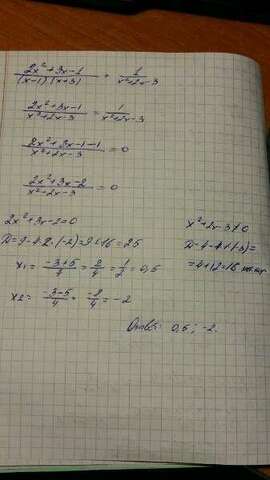 (2x²+3x-1)/((x-1)(x+3)) = 1/(x²+2x-3)
(2x²+3x-1)/(x²+2x-3) = 1/(x²+2x-3)
(2x²+3x-1-1)/(x²+2x-3) = 0
(2x²+3x-2)/(x²+2x-3) = 0
2x²+3x-2=0
D=9-4·2·(-2)=9+16=25
x₁ = (-3+5)/4 = 2/4 = 1/2 = 0,5
x₂ = (-3-5)/4 = -8/4 = -2
x²+2x-3≠0
D=4-4·(-3)=
=4+12=16
Ответ: 0,5; -2.